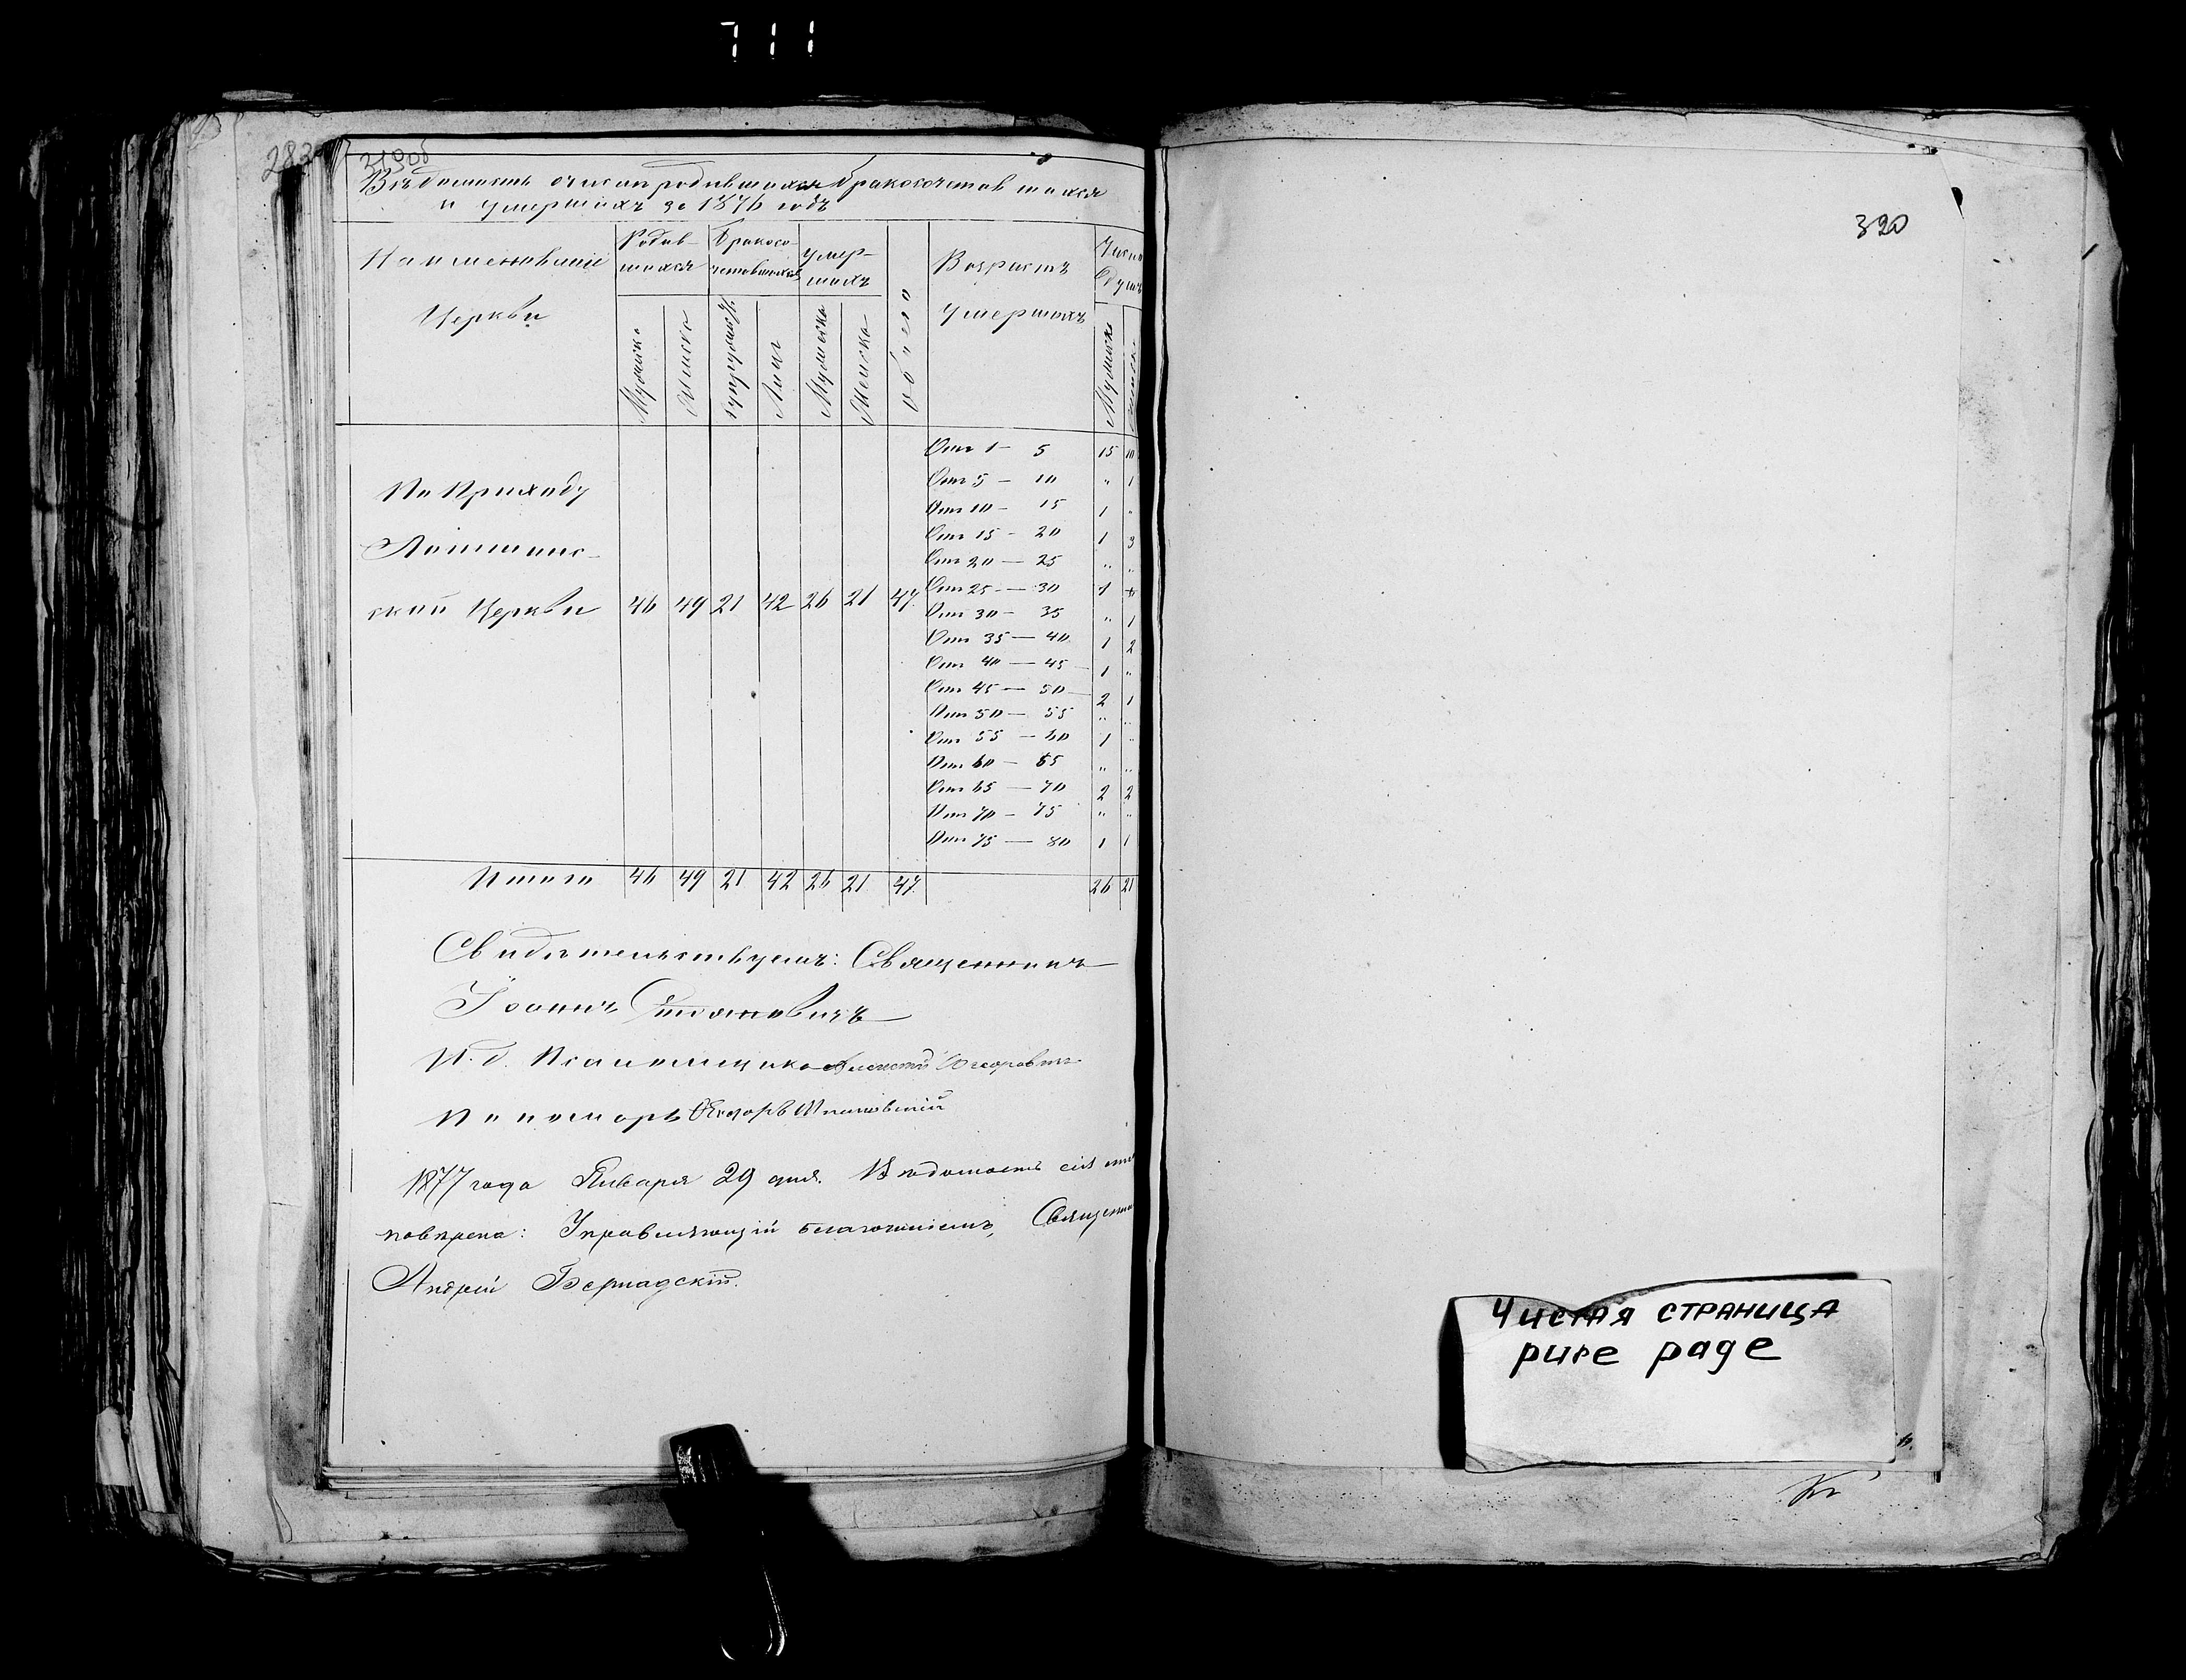 711
283
319об
Вѣдомость о числѣ родившихся бракосочетавшихся
и умершихъ за 1876 годъ
Наименованіе Церкви
Родив-
шихся
Бракосо-
четавшихся
Умер-
шихъ
Обоего
Возрастъ
умершихъ
Число
душъ
Мужска
Женска
Супружест.
Лицъ
Мужеска
Женска
Мужеска
Женска
Отъ 1 — 5 15 10
Отъ 5 — 10 „ 1
Отъ 10 — 15 1 „
Отъ 15 — 20 1 3
Отъ 20 — 25 „ „
Отъ 25 — 30 1
Отъ 30 — 35 „ 1
Отъ 35 — 40 1 2
Отъ 40 — 45 1 „
Отъ 45 — 50 2 1
Отъ 50 — 55 „ „
Отъ 55 — 60 1 „
Отъ 60 — 65 „ „
Отъ 65 — 70 2 2
Отъ 70 — 75 „ „
Отъ 75 — 80 1 1
По Приходу
ской Церкви 46 49 21 42 26 21 47
Итого 46 49 21 42 26 21 47 26 21
Свидѣтельствуемъ: Священникъ
Іоаннъ
И. д. Псаломщика
Пономарь
1877 года Января 29 дня. Вѣдомость сія
повѣрена: Управляющій благочиніемъ, Священ
Андрей Бернадскій.
320
Чистая страница
pure page